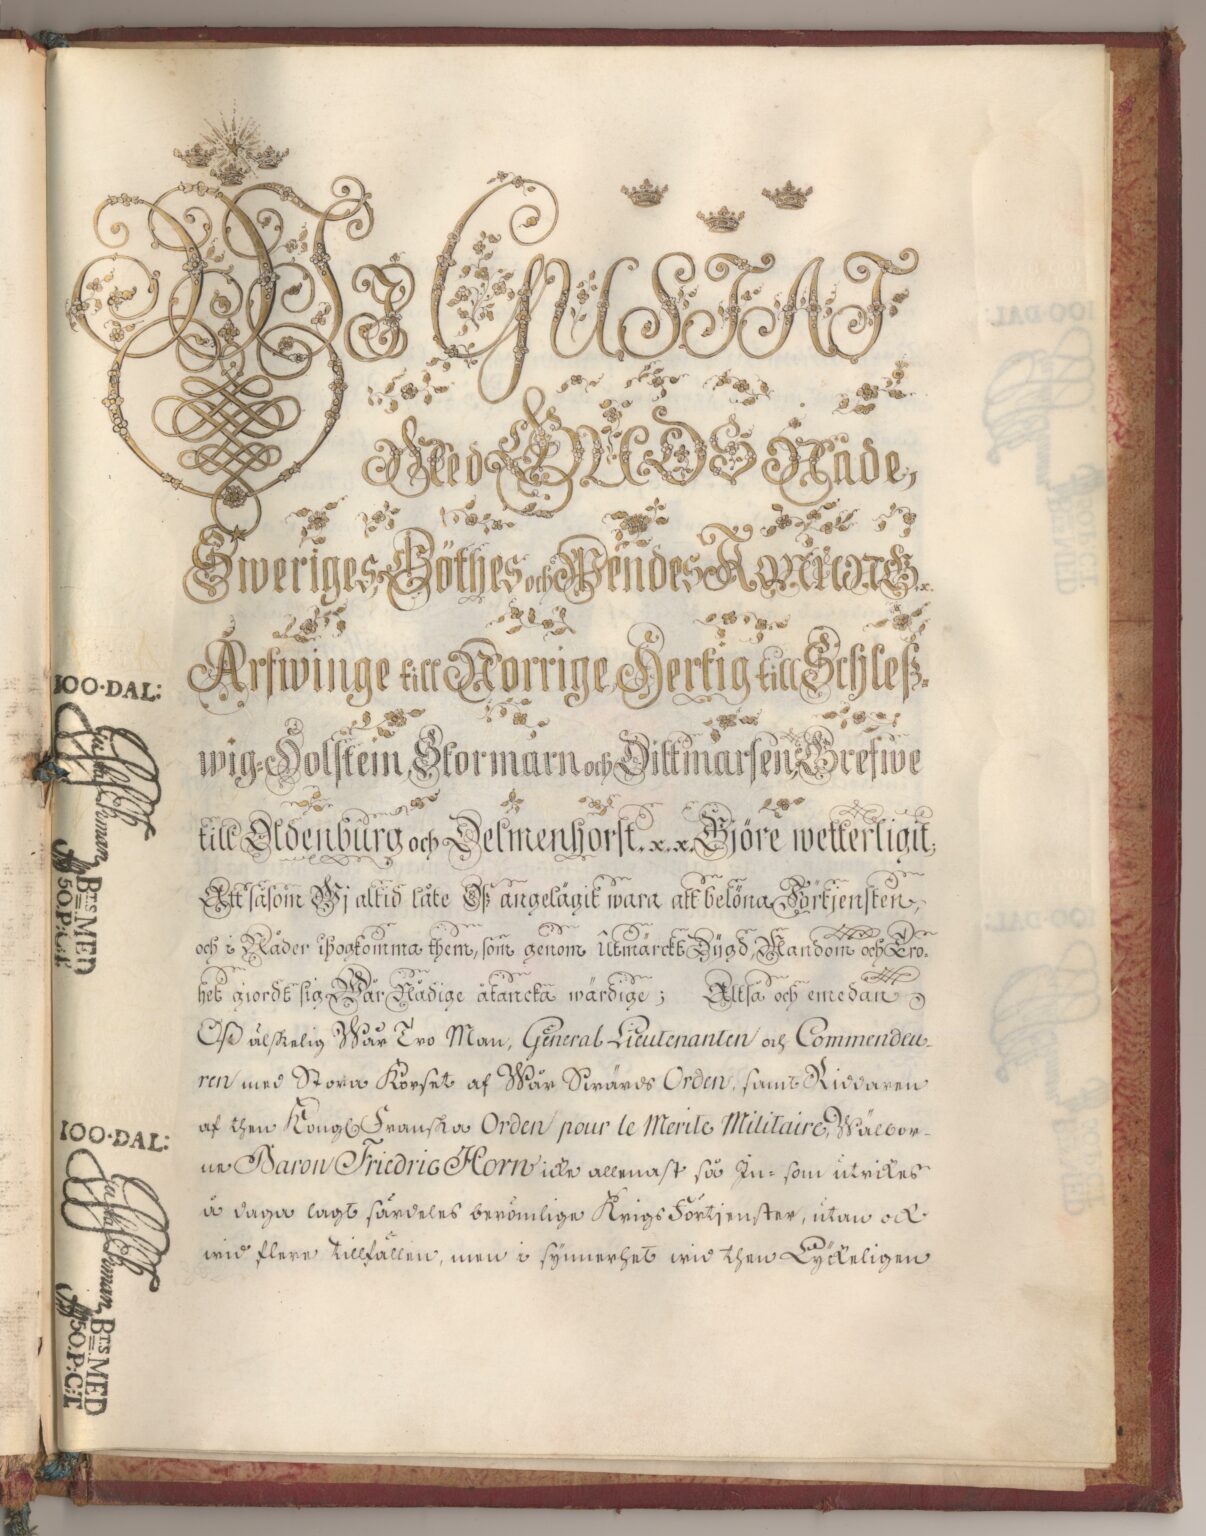 Wij GUSTAF
Med GUDS Nåde,
Sweriges, Göthes och Wendes KONUNG.x.
Arfwinge till Norrige, Hertig till Schleß-
wig-Holstein, Stormarn och Dittmarsen, Grefwe
till Oldenburg och Delmenhorst.x.x. Gjöre wetterligit;
Att såsom Wj altid låte Oß angelägit wara att belöna Förtjensten,
och i Nåder ihogkomma them, som genom utmärckt Dÿgd, Mandom och Tro-
het giordt sig Wår Nådige åtancka wärdige; Altså och emedan
Oß älskelig Wår Tro Man, General Lieutenanten och Commendeu-
ren med Stora Korset af Wår Swärds Orden, samt Riddaren
af then Kongl Franska Orden pour le Merite Militaire, Wälbor-
ne Baron Friedric Horn icke allenast så In- som utrikes
å daga lagt särdeles berömlige Krigs Förtjenster, utan ock
wid flere tillfällen, men i synnerhet wid then Lyckeligen
100·DAL:
BTS MED
50.P:C:T
100·DAL:
BTS MED
50.P:C:T